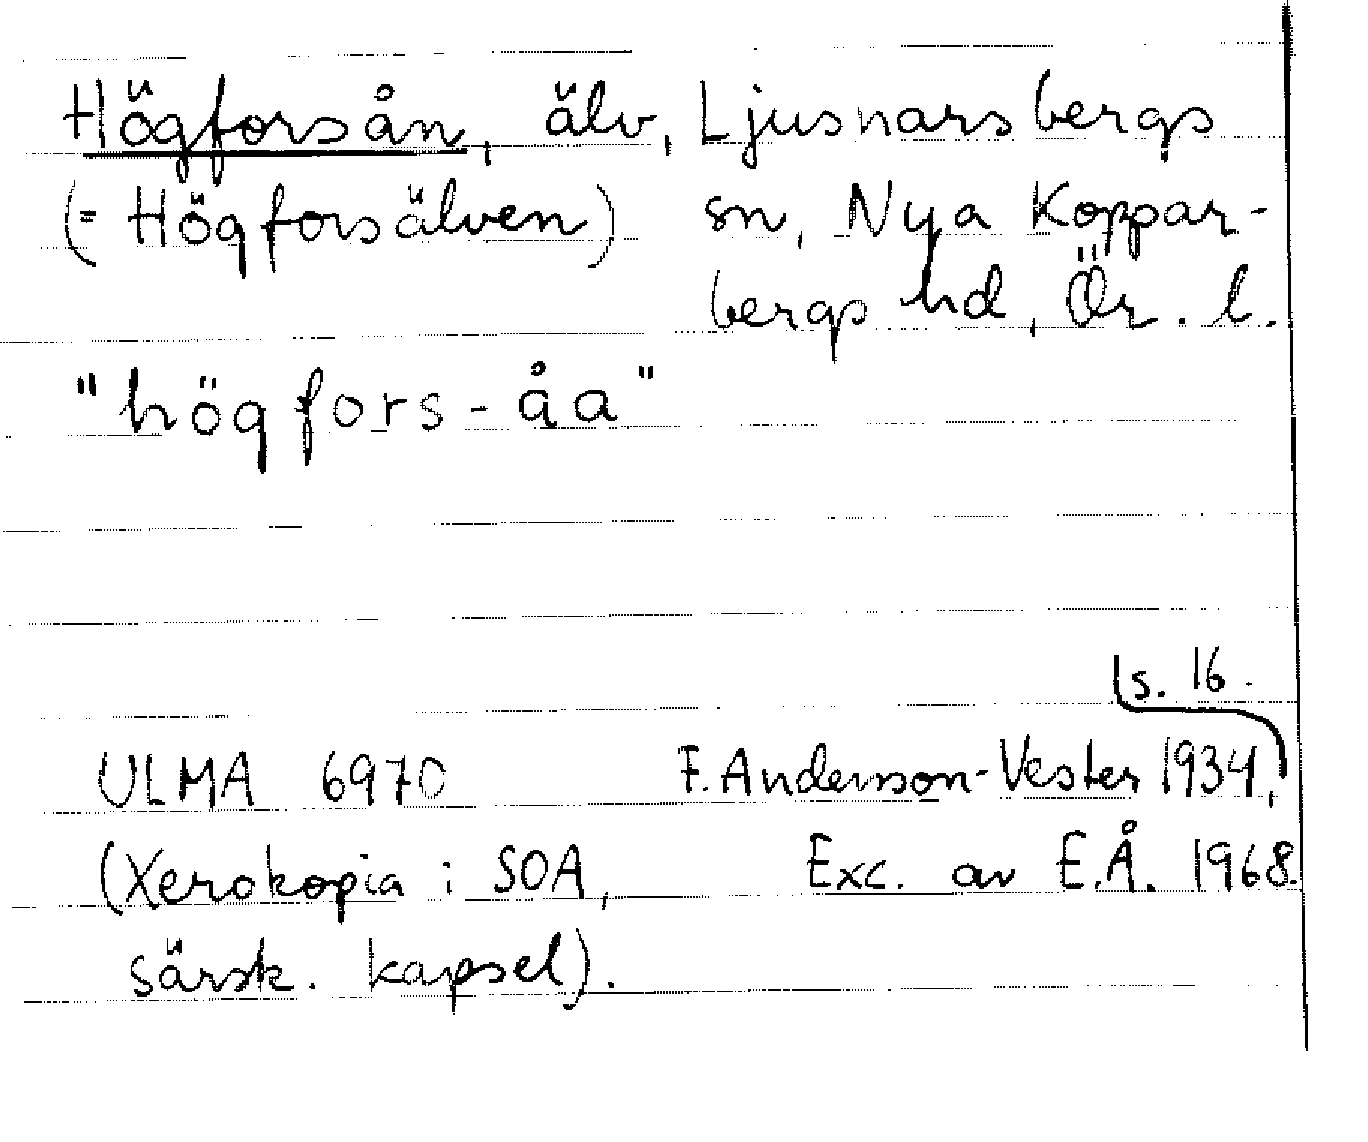 Högforsån, älv, Ljusnarsbergs
(= Högforsälven) sn, Nya Koppar-
bergs hd, Ör. l.
"högfors-åa"
s. 16.
ULMA 6970 F. Andersson-Vester 1934,
(Xerokopia i SOA, Exc. av E.Å. 1968.
särsk. kapsel).